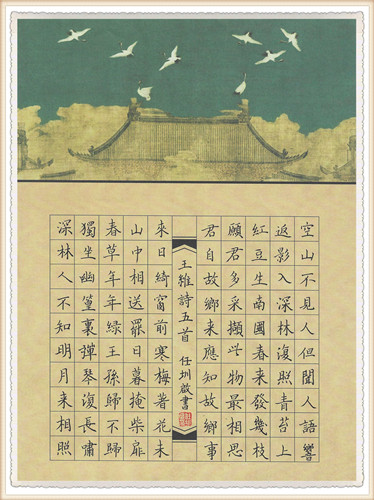 空山不見人但聞人語響
返影入深林復照青苔上
紅豆生南國春來發幾枝
願君多采擷此物最相思
君自故鄉來應知故鄉事
王維詩五首 任圳啟書
來日綺窗前寒梅著花未
山中相送罷日暮掩柴扉
春草年年綠王孫歸不歸
獨坐幽篁裏彈琴復長嘯
深林人不知明月來相照